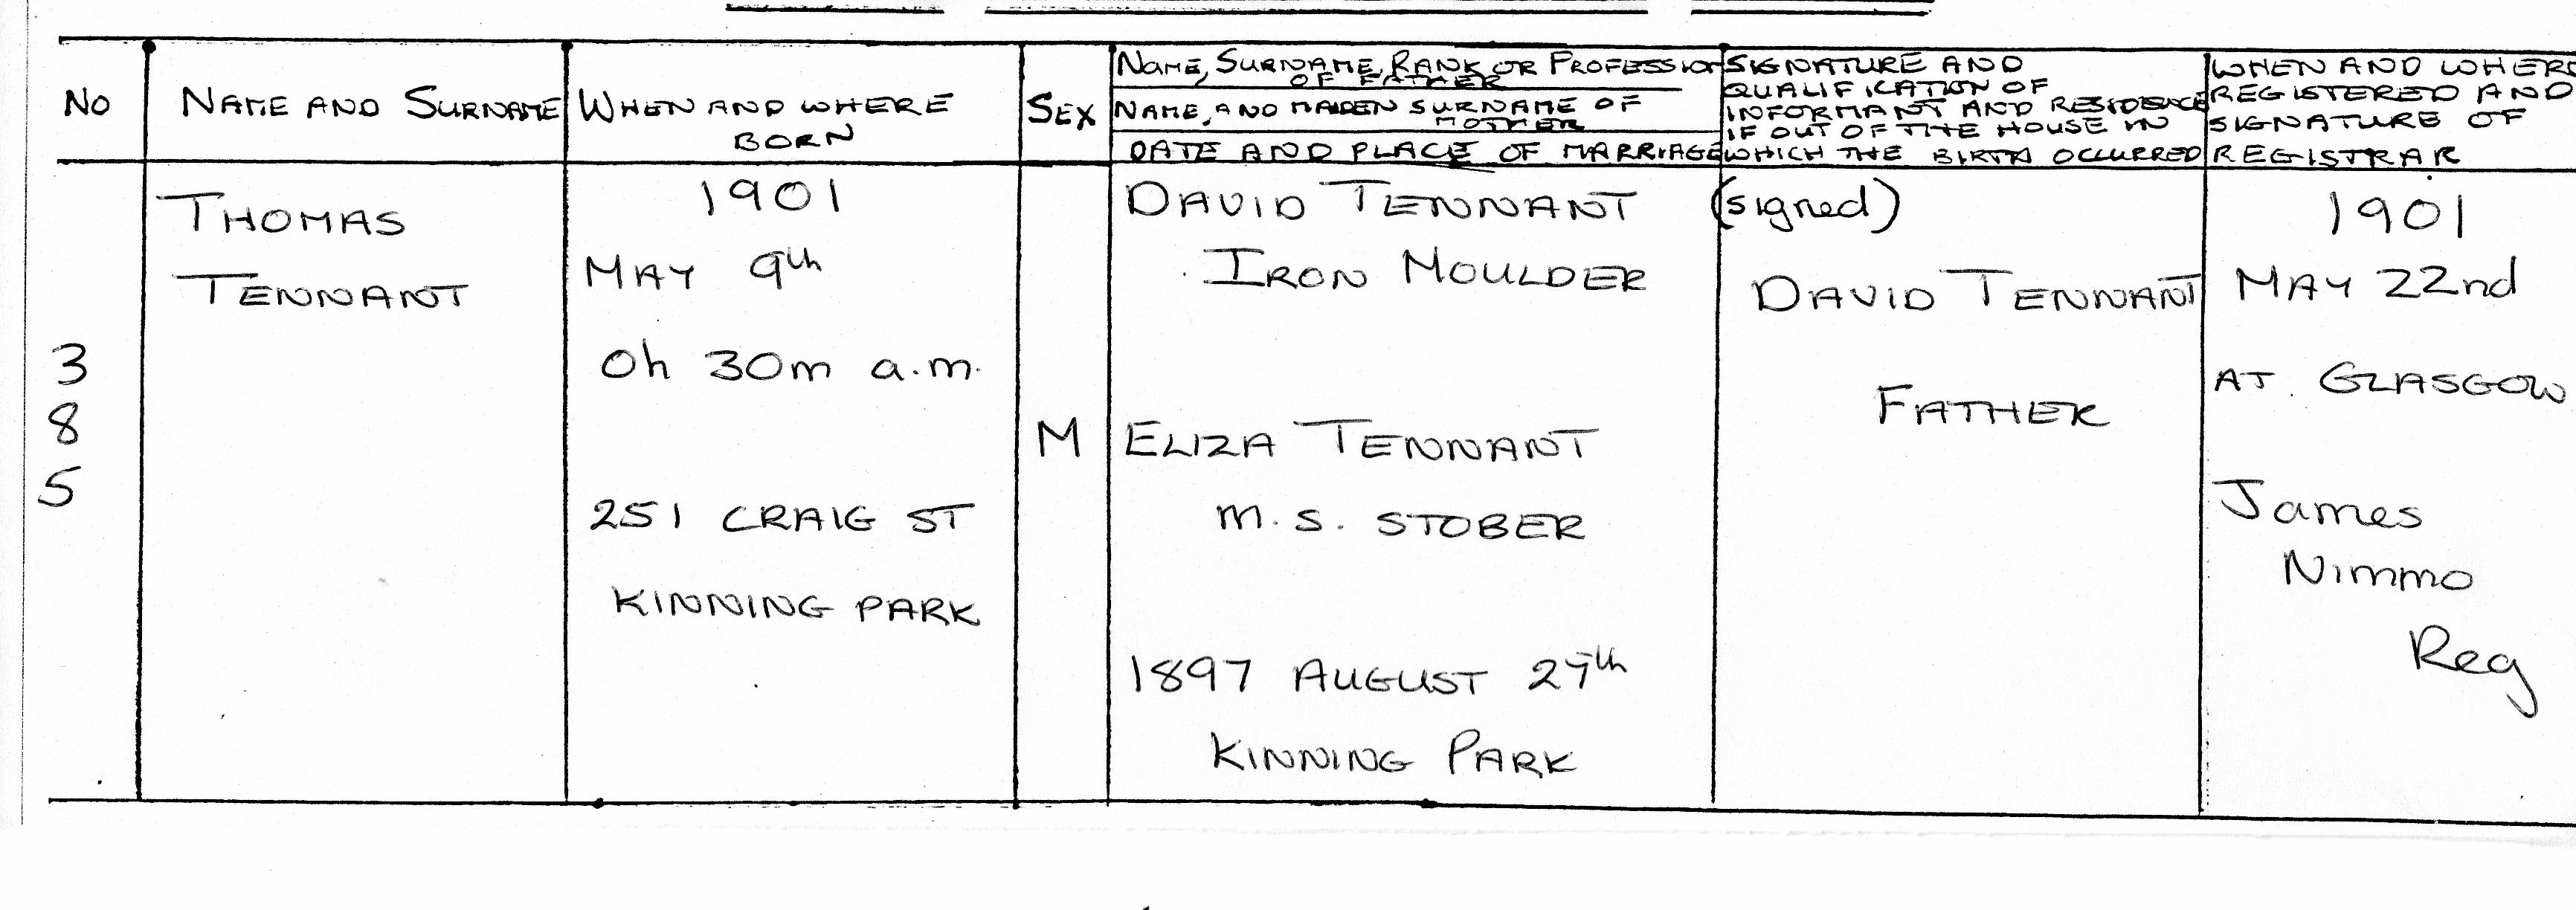 No
NAME AND SURNAME
WHEN AND WHERE
BORN
SEX
NAME, SURNAME, RANK OR PROFESSION
OF FATHER
NAME, AND MAIDEN SURNAME OF
MOTHER
DATE AND PLACE OF MARRIAGE
SIGNATURE AND
QUALIFICATION OF
INFORMANT AND RESIDENCE
IF OUT OF THE HOUSE IN
WHICH THE BIRTH OCCURRED
WHEN AND WHERE
REGISTERED AND
SIGNATURE OF
REGISTRAR
3
8
5
THOMAS
TENNANT
1901
MAY 9th
0h 30m a.m.
251 CRAIG ST
KINNING PARK
M
DAVID TENNANT
IRON MOULDER
ELIZA TENNANT
M.S. STOBER
1897 AUGUST 27th
KINNING PARK
(signed)
DAVID TENNANT
FATHER
1901
MAY 22nd
AT GLASGOW
James
Nimmo
Reg